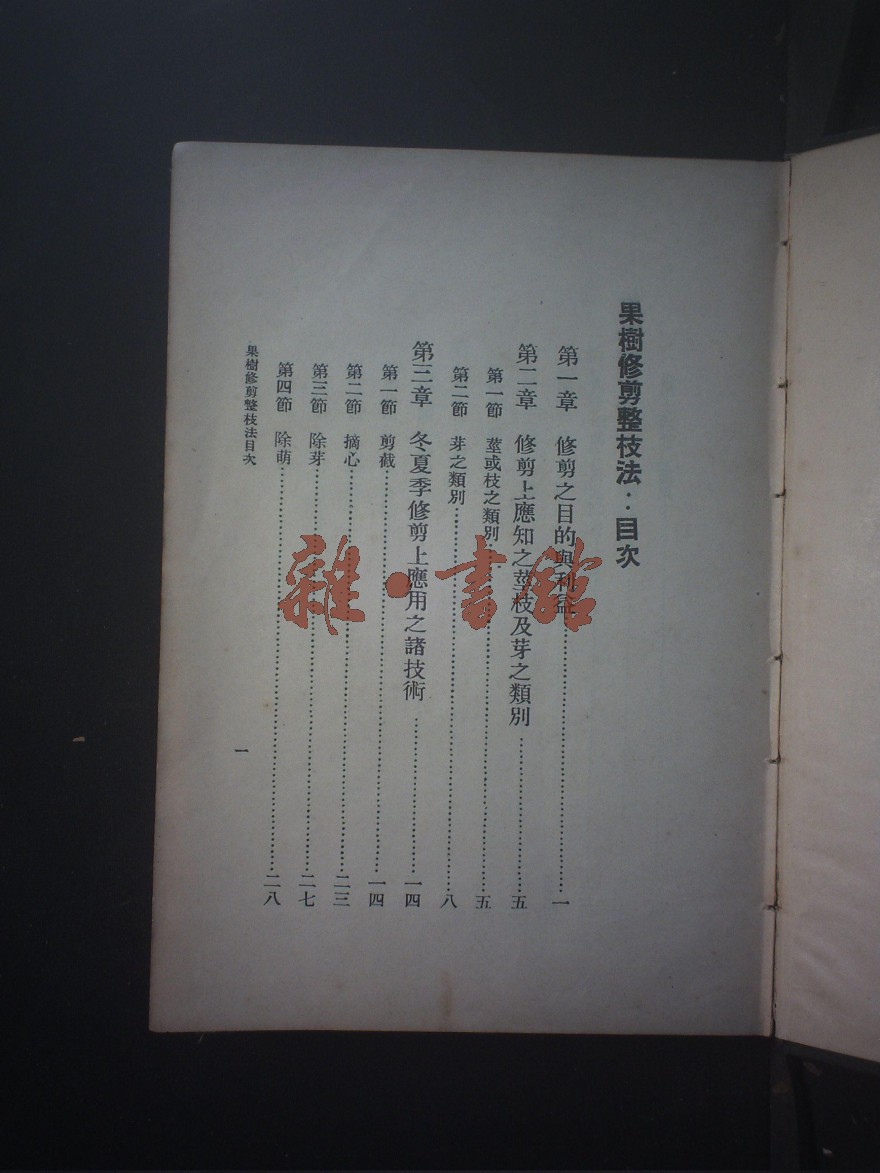 果樹修剪整枝法‥目次
第一章 修剪之目的與利益……一
第二章 修剪上應知之莖枝及芽之類別……五
第一節 莖或枝之類別……五
第二節 芽之類別……八
第三章 冬夏季修剪上應用之諸技術……一四
第一節 剪截……一四
第二節 摘心……二三
第三節 除芽……二七
第四節 除萌……二八
果樹修剪整枝法目次
一
雜·書館